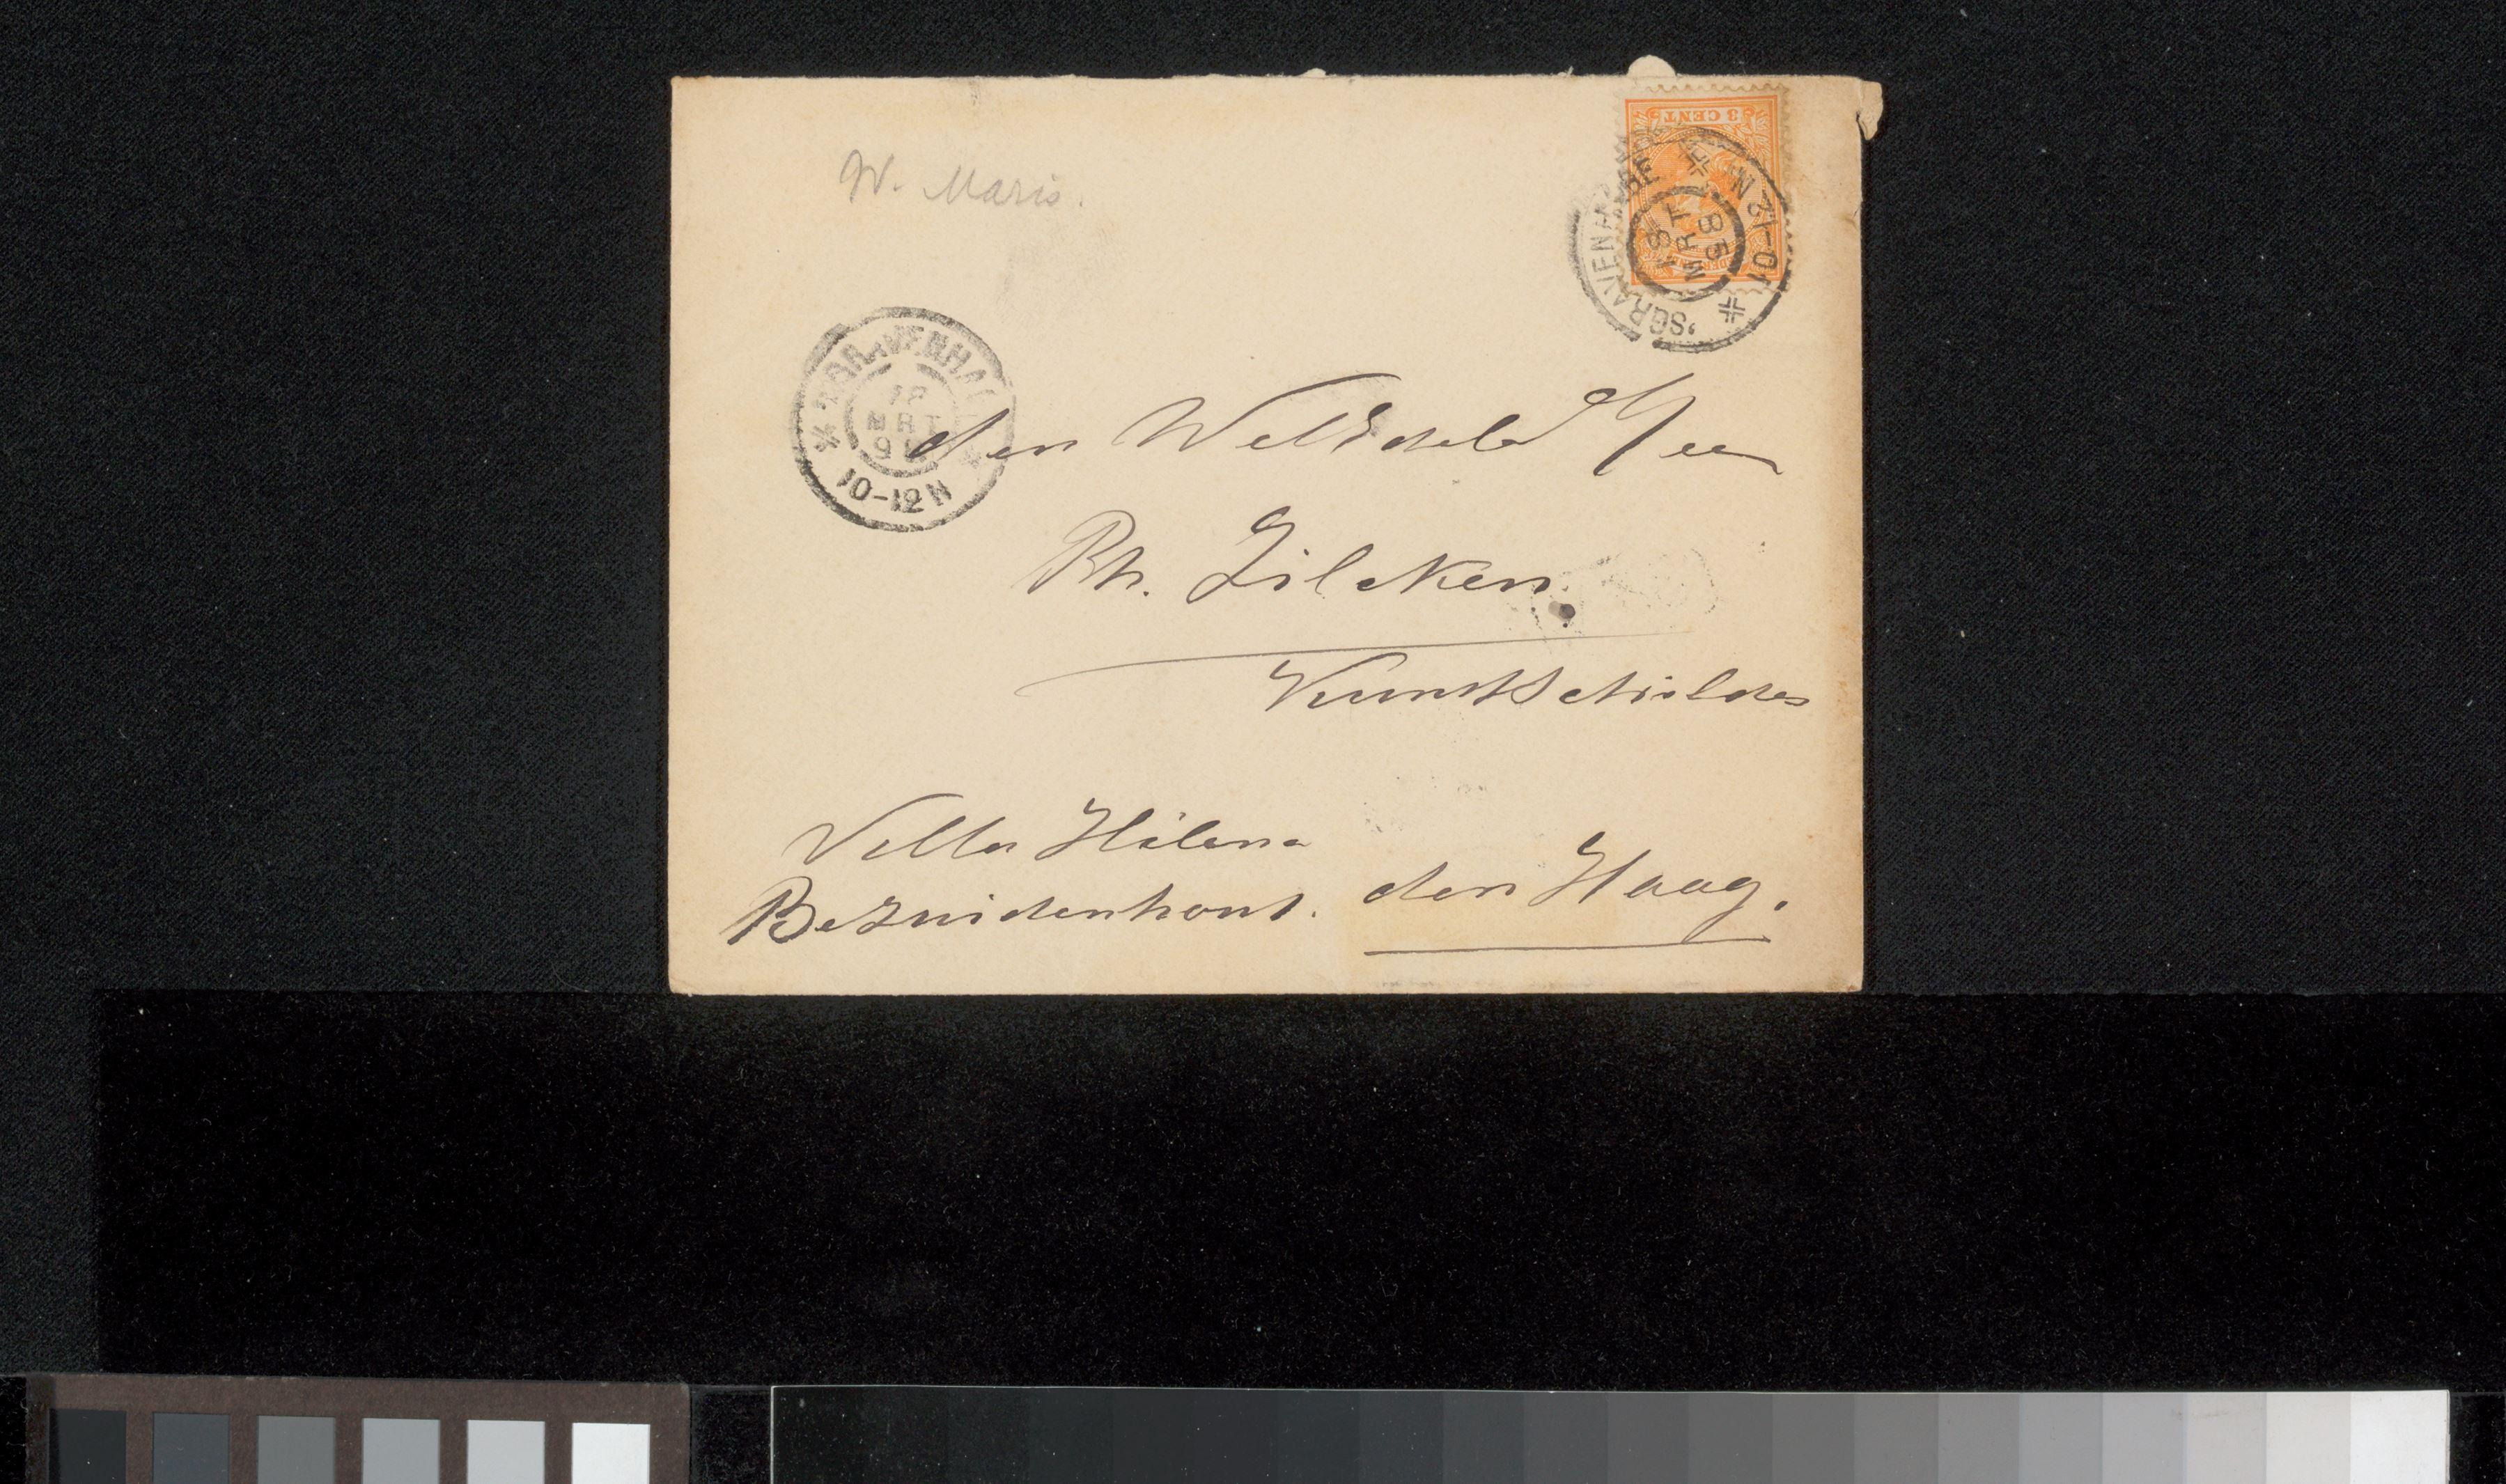 W. Maris.
3 CENT
'SGRAVENHAGE
18
MRT
95
10-12N
'SGRAVENHAGE
18
MRT
95
10-12N
den WelEdele Heer
Ph. Zilcken.
Kunstschilder
Villa Hélena
Bezuidenhout. den Haag.